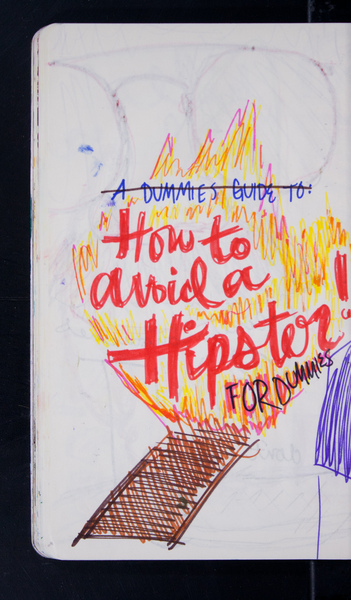 A DUMMIES GUIDE TO:
How to
avoid a
Hipster!
FOR DUMMIES